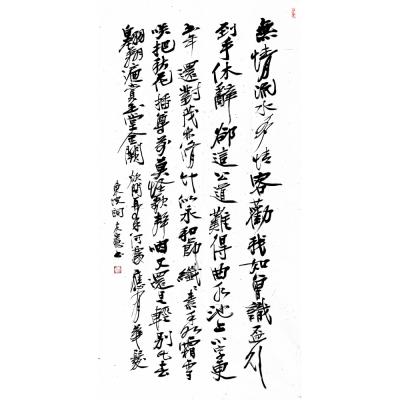 無情流水多情客勸我如曾識盃行
到手休辭卻這公道難得曲水池上小字更
書年還對茂林脩竹似永和節纖纖素手如霜雪
咲把秋花插尊前莫怪歌辭咽又還是輕別此去
翱翔遍賞玉堂金闕欲問再来何歲應有華髮
東坡詞